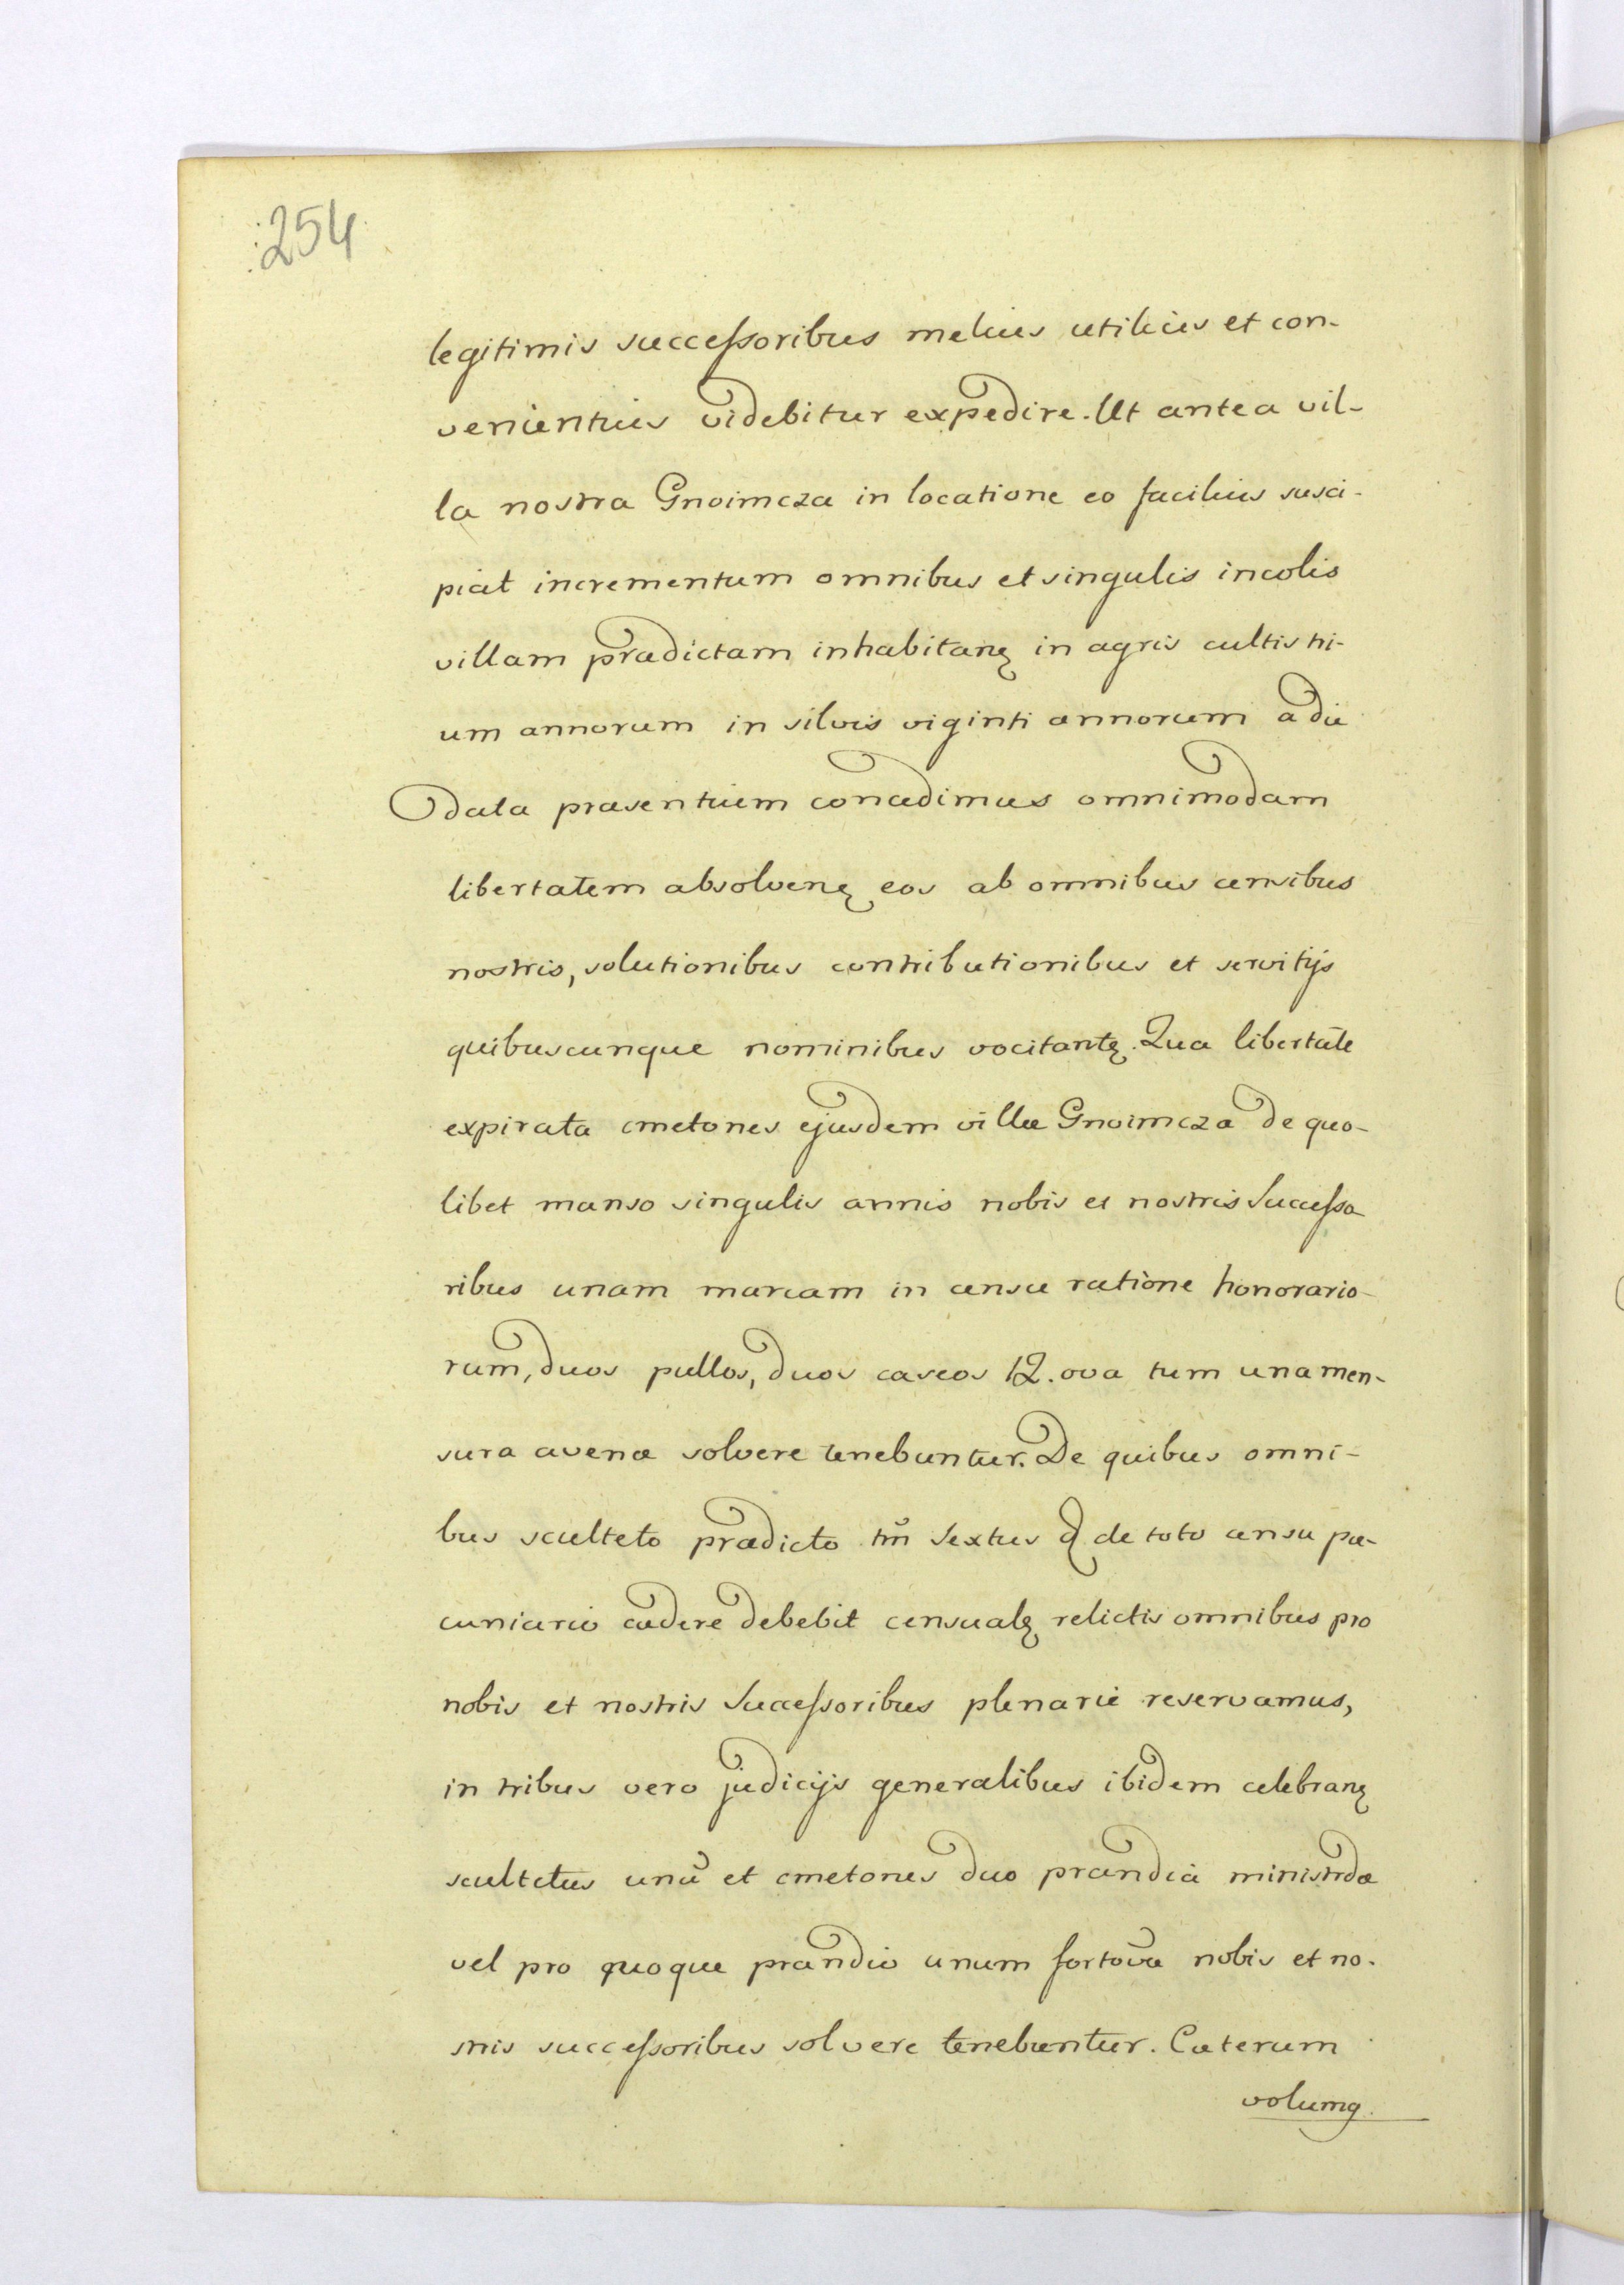 254
legitimis successoribus melius utilius et con-
venientius videbitur expedire. Ut antea vil-
la nostra Gnoimcza in locatione eo facilius susci-
piat incrementum omnibus et singulis incolis
villam prædictam inhabitanꝫ in agris cultis tri-
um annorum in silvis viginti annorum a die
data præsentium concedimus omnimodam
libertatem absolvenꝫ eos ab omnibus censibus
nostris, solutionibus contributionibus et servitijs
quibuscunque nominibus vocitantꝫ. Qua libertate
expirata cmetones ejusdem villæ Gnoimcza de quo-
libet manso singulis annis nobis et nostris Successo
ribus unam marcam in censu ratione honorario-
rum, duos pullos, duos caseos 12. ova tum una men-
sura avenæ solvere tenebuntur. De quibus omni-
bus sculteto prædicto tm̃ Sextus d de toto censu pæ-
cuniario cædere debebit censualꝫ relictis omnibus pro
nobis et nostris Successoribus plenarie reservamus,
in tribus vero judicijs generalibus ibidem celebranꝫ
scultetus unũ et cmetones duo prandia ministrda
vel pro quoque prandio unum fertova nobis et no-
stris successoribus solvere tenebuntur. Cæterum
volumꝫ